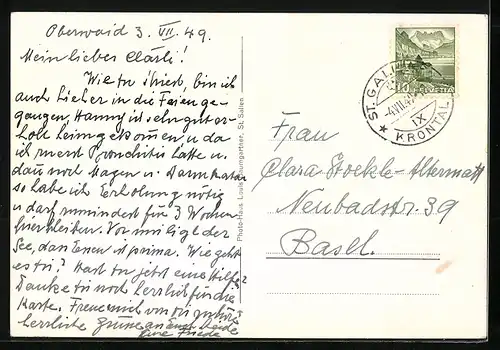 Oberwaid 3. VII. 49.
Mein lieber Clärli!
Wie du siehst, bin ich
auch hieher in die Ferien ge-
gangen, Hanny ist sehr gut er-
holt heimgekommen u. da
ich zuerst Bronchitis hatte u.
dann noch Magen u. Darmkatarr
so habe ich Erholung nötig
u. darf zumindest für 3 Wochen
hier bleiben. Vor mir liegt der
See, das Essen ist prima. Wie geht
es dir? Hast du jetzt eine Hilfe?
Danke dir noch herzlich für die
Karte. Freue mich von dir zu hören
herzliche Grüsse an Euch beide
Eure Friede
Photo-Haus Louis Baumgartner, St. Gallen
HELVETIA
10
ST. GALLEN
KRONTAL
IX
Frau
Clara Stöckle-Altermatt
Neubadstr. 39
Basel.